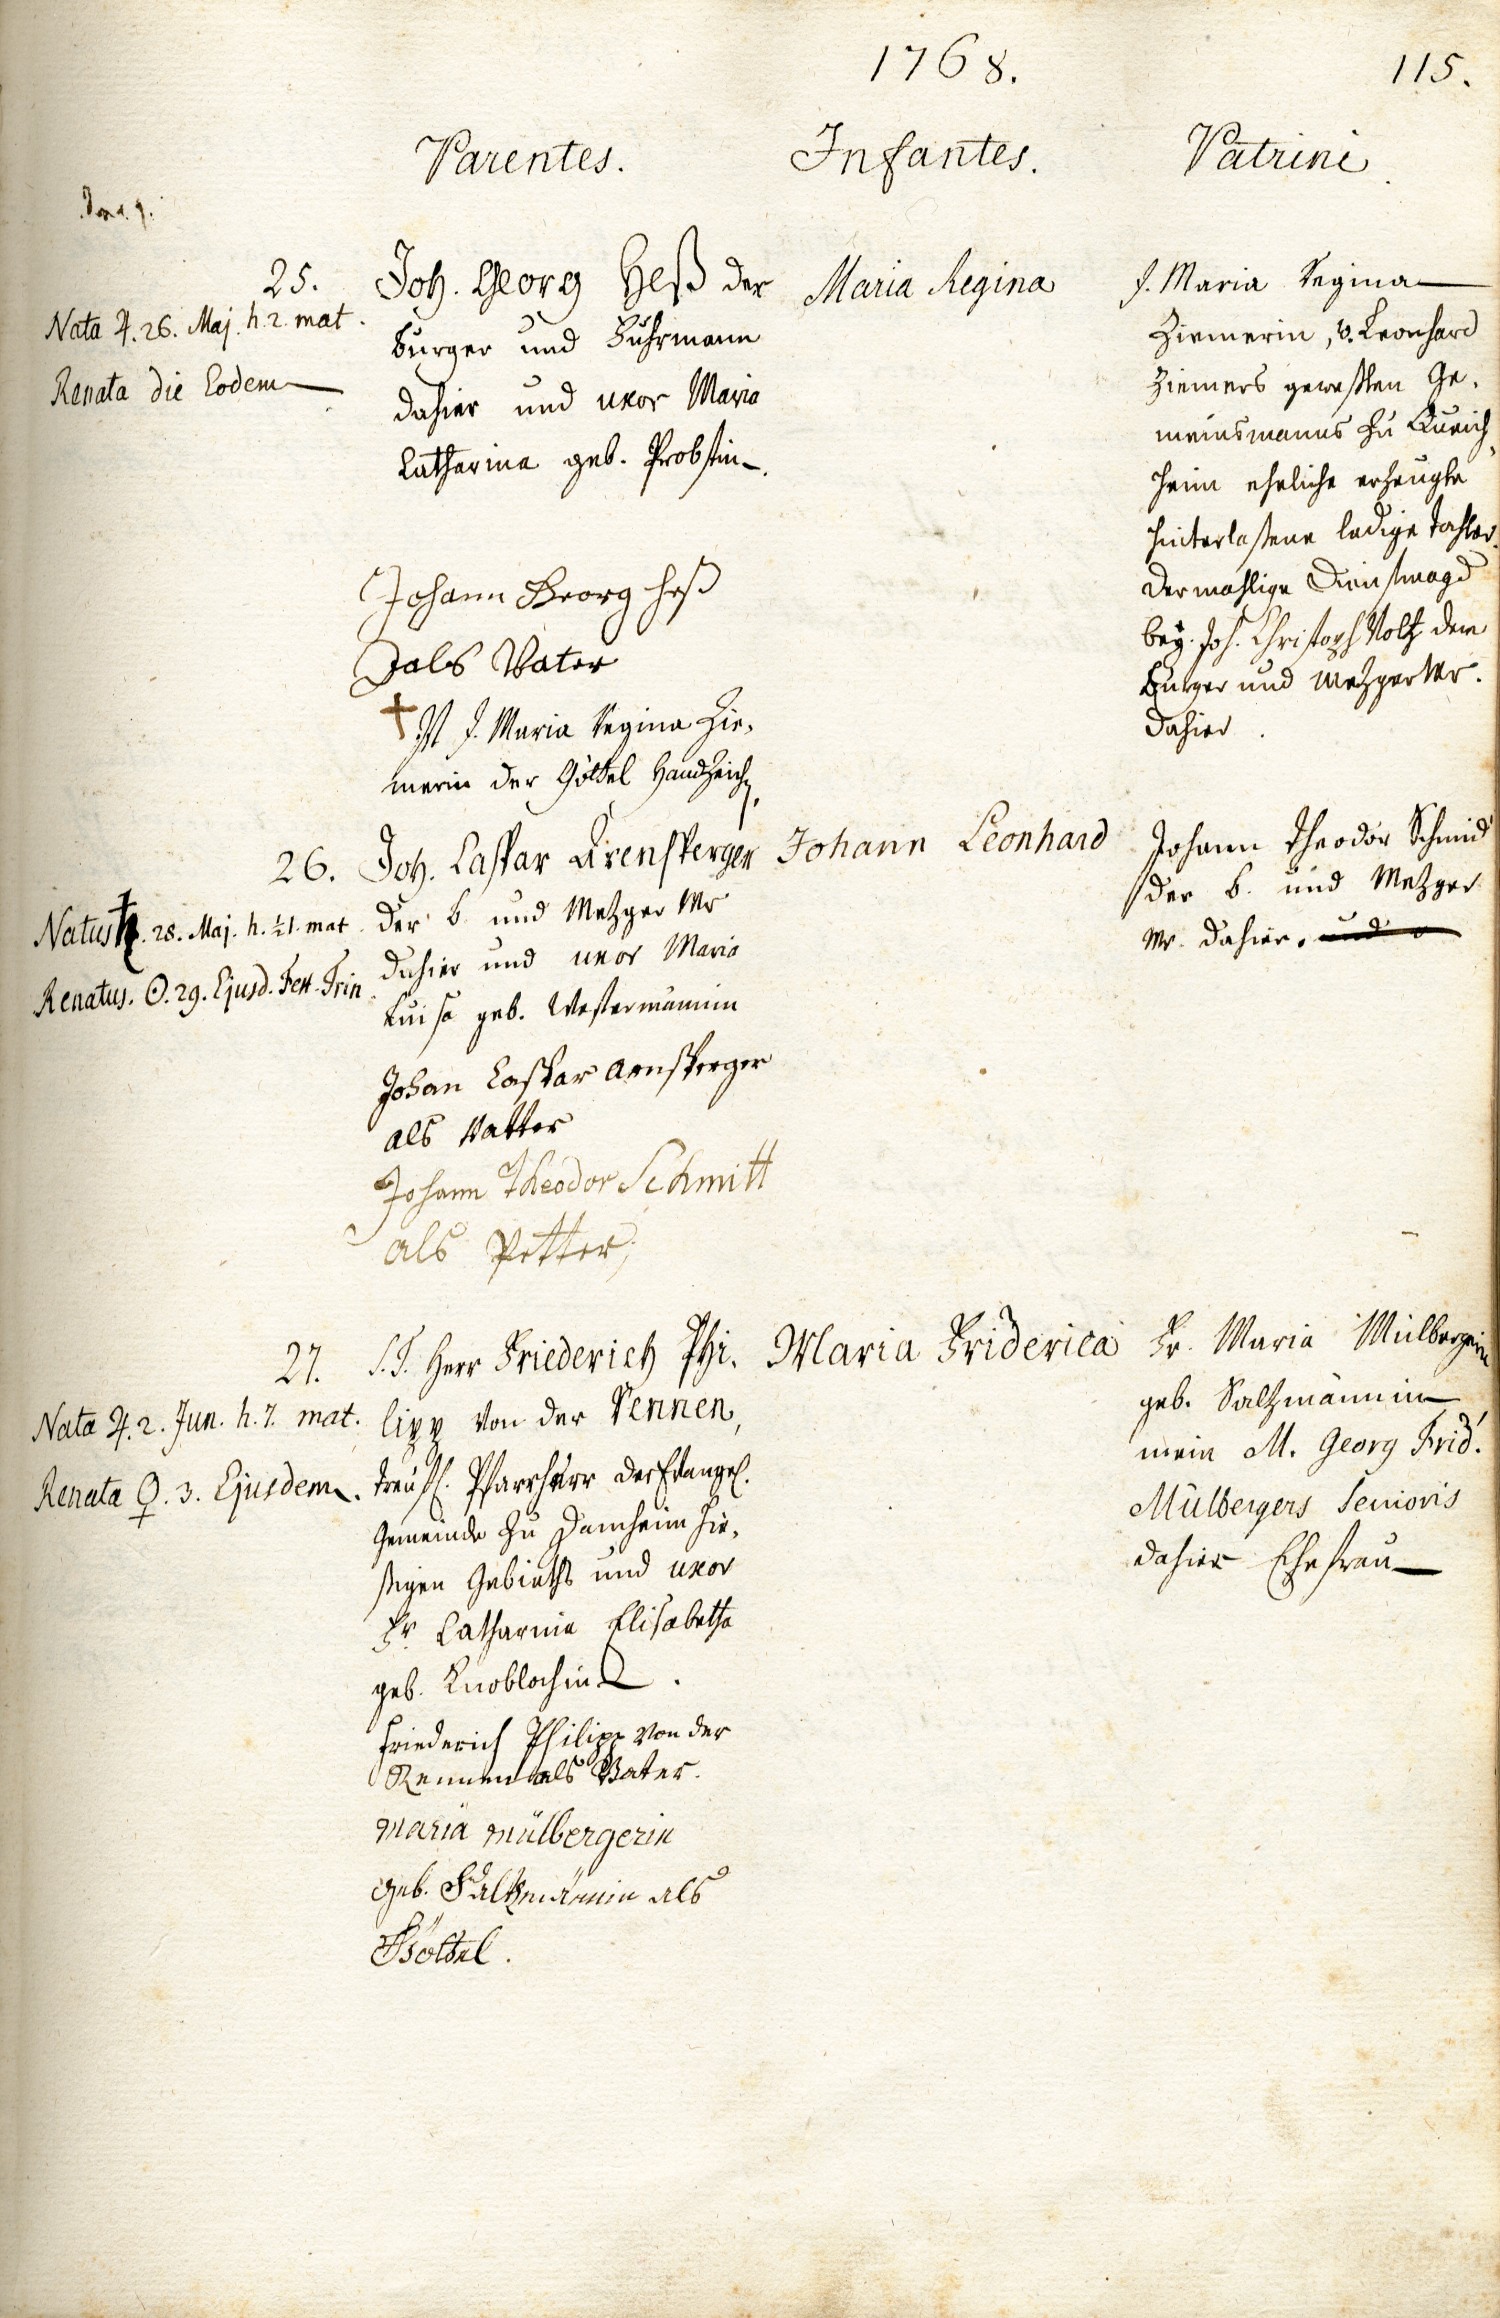 1768.
115.
Parentes.
Infantes.
Patrini
25.
Nata ♃. 26. Maj. h. 2. mat.
Renata die Eodem
Joh. Georg Heß der
burger und Fuhrmann
dahier und uxor Maria
Catharina geb. Probstin.
Johann Georg Heß
als Vater
† Ist J. Maria Regina Zie-
merin der Göttel Handzeich
Maria Regina
J. Maria Regina
Ziemerin, v. Leonhard
Ziemers geweßten Ge-
meinsmanns zu Queich-
heim eheliche erzeugte
hinterlaßene ledige Tochter
dermahlige Dienstmagd
bey Joh. Christoph Voltz dem
burger und Metzger Mr.
dahier.
26.
Natus ♄. 28. Maj. h. ½1. mat.
Renatus. ☉. 29. Ejusd. Fest. Trin.
Joh. Caspar Arensperger
der b. und Metzger Mr
dahier und uxor Maria
Luisa geb. Westermännin
Johan Caspar Arnsperger
als Vatter
Johann Theodor Schmitt
als Petter,
Johann Leonhard
Johann Theodor Schmid
der b. und Metzger
Mr. dahier. und
27.
Nata ♃. 2. Jun. h. 7. mat.
Renata ♀. 3. Ejusdem.
S. T. Herr Friederich Phi-
lipp von der Rennen,
treufl. Pfarrherr der Evangel.
Gemeinde zu Damheim hie-
sigen Gebieths und uxor
Fr. Catharina Elisabetha
geb. Knoblochin.
Friederich Philipp von der
Rennen als Vater.
Maria Mülbergerin
geb. Saltzmännin als
Göttel.
Maria Friderica
Fr. Maria Mülbergerin
geb. Saltzmännin
mein M. Georg Frid.
Mülbergers Senioris
dahier Ehefrau